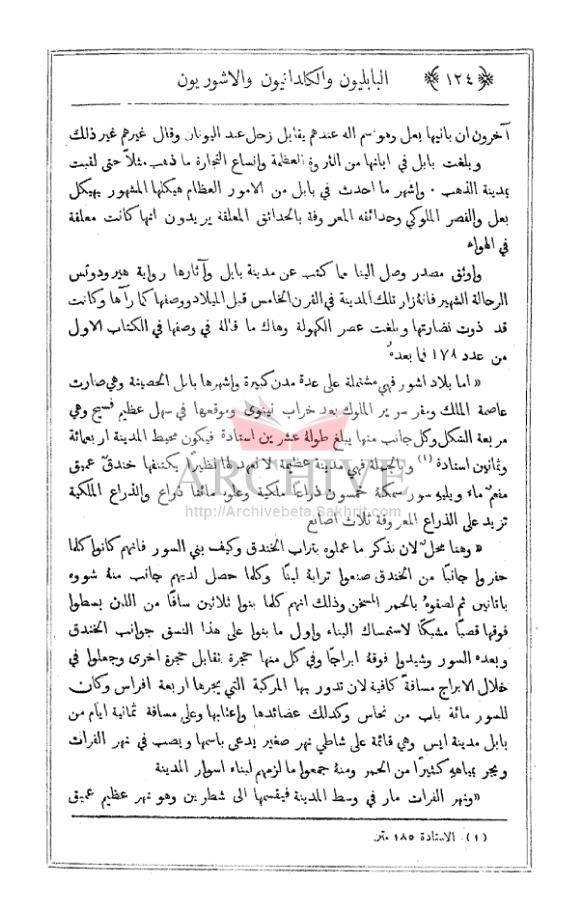 ﴿ ١٢٤ ﴾ البابليون والكلدانيون والاشوريون
آخرون ان بانيها بعل وهو اسم اله عندهم يقابل زحل عند اليونان وقال غيرهم غير ذلك
وبلغت بابل في ابانها من الثروة العظمة واتساع التجارة ما ذهب مثلاً حتى لقبت
بمدينة الذهب . واشهر ما احدث في بابل من الامور العظام هيكلها المشهور بهيكل
بعل والقصر الملوكي وحدائقه المعروفة بالحدائق المعلقة يريدون انها كانت معلقة
في الهواء
واوثق مصدر وصل الينا مما كتب عن مدينة بابل وآثارها رواية هيرودوتس
الرحالة الشهير فانهُ زار تلك المدينة في القرن الخامس قبل الميلاد ووصفها كما رآها وكانت
قد ذوت نضارتها وبلغت عصر الكهولة وهاك ما قالهُ في وصفها في الكتاب الاول
من عدد ١٧٨ فما بعدهُ
« اما بلاد اشور فهي مشتملة على عدة مدن كبيرة واشهرها بابل الحصينة وهي صارت
عاصمة الملك ومقر سرير الملوك بعد خراب نينوى وموقعها في سهل عظيم فسيح وهي
مربعة الشكل وكل جانب منها يبلغ طولهُ عشرين استادة فيكون محيط المدينة اربعمائة
وثمانين استادة (١) وبالجملة فهي مدينة عظيمة لا نعهد لها نظيراً يكتنفها خندق عميق
مفعم ماء ويليهِ سور سمكهُ خمسون ذراعاً ملكية وعلوه مائتا ذراع والذراع الملكية
تزيد على الذراع المعروفة ثلاث اصابع
« وهنا محلٌ لان نذكر ما عملوه بتراب الخندق وكيف بني السور فانهم كانوا كلما
حفروا جانباً من الخندق صنعوا ترابهُ لبناً وكلما حصل لديهم جانب منهُ شووه
باتانين ثم لصقوهُ بالحمر المسخن وذلك انهم كلما بنوا ثلاثين سافاً من اللبن بسطوا
فوقها قصباً مشبكاً لاستمساك البناء واول ما بنوا على هذا النسق جوانب الخندق
وبعده السور وشيدوا فوقهُ ابراجاً وفي كل منها حجرة تقابل حجرة اخرى وجعلوا في
خلال الابراج مسافةً كافية لان تدور بها المركبة التي يجرها اربعة افراس وكان
للسور مائة باب من نحاس وكذلك عضائدها واعتابها وعلى مسافة ثمانية ايام من
بابل مدينة ايس وهي قائمة على شاطي نهر صغير يدعى باسمها ويصب في نهر الفرات
ويجر بمياههِ كثيراً من الحمر ومنهُ جمعوا ما لزمهم لبناء اسوار المدينة
«ونهر الفرات مار في وسط المدينة فيقسمها الى شطرين وهو نهر عظيم عميق
(١) الاستادة ١٨٥ متر
ARCHIVE
http://Archivebeta.Sakhrit.com